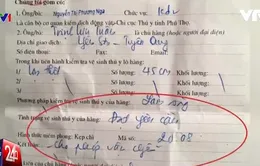 VTV1
Chúng tôi gồm có:
1. Ông/bà: Nguyễn Thị Phương Nga
Là cán bộ cơ quan kiểm dịch động vật: Chi cục Thú y tỉnh Phú Thọ.
2. Ông/bà: Trịnh Văn Tuấn (hoặc người đại diện)
Địa chỉ giao dịch: Yên Sơn - Tuyên Quang
Trong đó tiến hành kiểm tra vệ sinh thú y của hàng:
1/ Lợn thịt Số lượng: 45 con Khối lượng:
2/ Số lượng: Khối lượng:
3/ Số lượng: Khối lượng:
Phương pháp kiểm tra vệ sinh thú y của hàng: Lâm sàng
Tình trạng vệ sinh thú y của hàng:
Đạt yêu cầu
Hình thức niêm phong: Kẹp chì Mã số: 2008
Cho phép vận chuyển